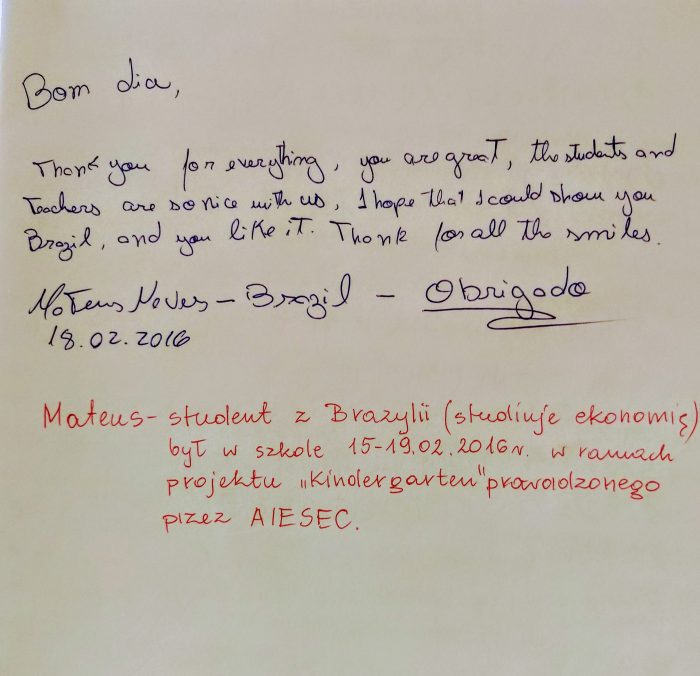 Bom dia,
Thank you for everything, you are great, the students and
teachers are so nice with us, I hope that I could show you
Brazil, and you like it. Thank for all the smiles.
Mateus Neves - Brazil - Obrigado
18.02.2016
Mateus - student z Brazylii (studiuje ekonomię)
był w szkole 15-19.02.2016r. w ramach
projektu „Kindergarten" prowadzonego
przez AIESEC.